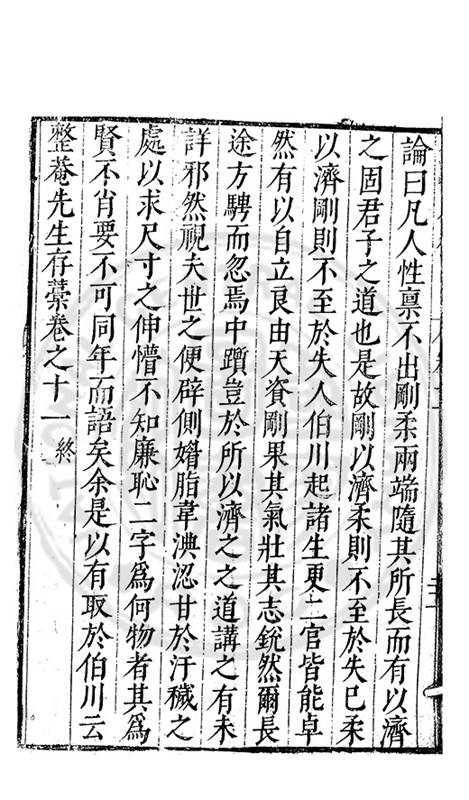 論曰凡人性禀不出剛柔兩端隨其所長而有以濟
之固君子之道也是故剛以濟柔則不至於失已柔
以濟剛則不至於失人伯川起諸生更二官皆能卓
然有以自立良由天資剛果其氣壯其志銳然爾長
途方騁而忽焉中躓豈於所以濟之之道講之有未
詳邪然視夫世之便辟側媚脂韋淟涊甘於汙穢之
處以求尺寸之伸懵不知廉恥二字爲何物者其爲
賢不肖要不可同年而語矣余是以有取於伯川云
整菴先生存藁卷之十一 終